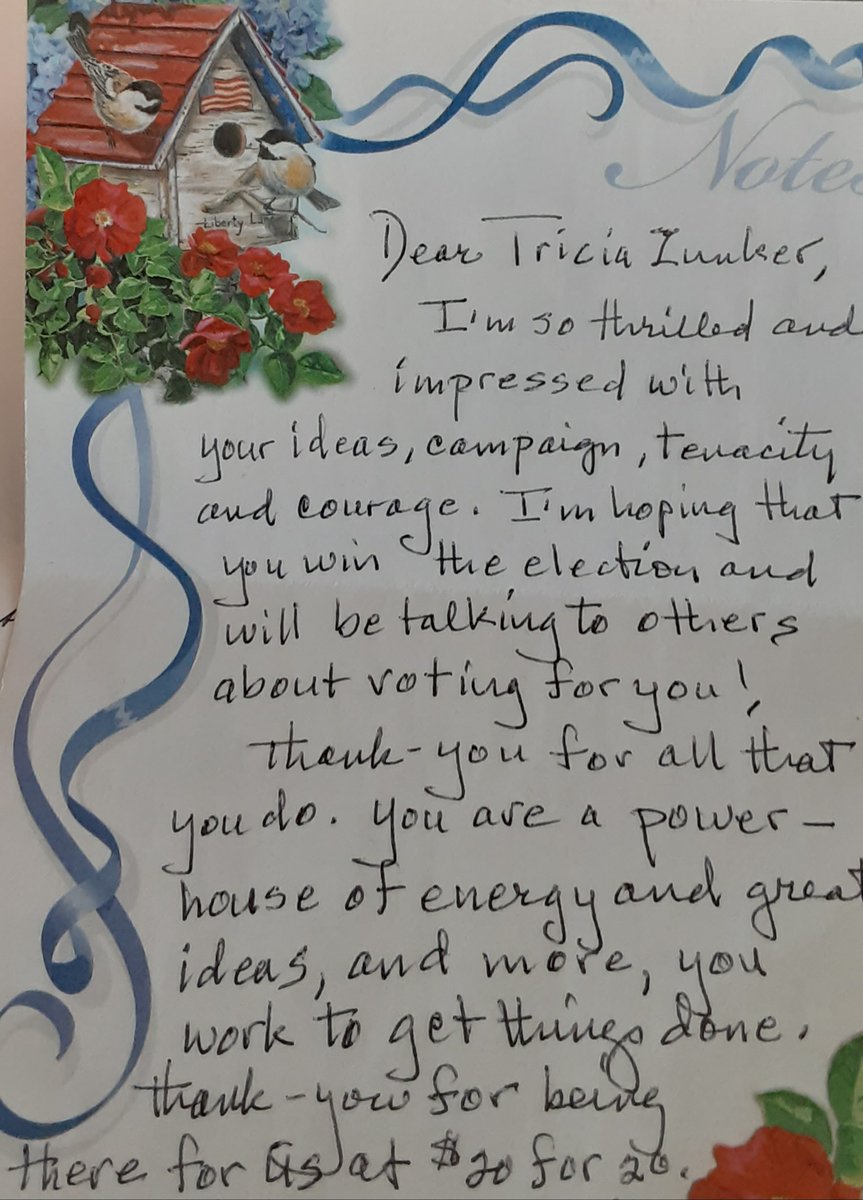 Notes
Liberty L
Dear Tricia Zunker,
I'm so thrilled and
impressed with
your ideas, campaign, tenacity
and courage. I'm hoping that
you win the election and
will be talking to others
about voting for you!
Thank-you for all that
you do. You are a power-
house of energy and great
ideas, and more, you
work to get things done.
Thank-you for being
there for us at $20 for 20.